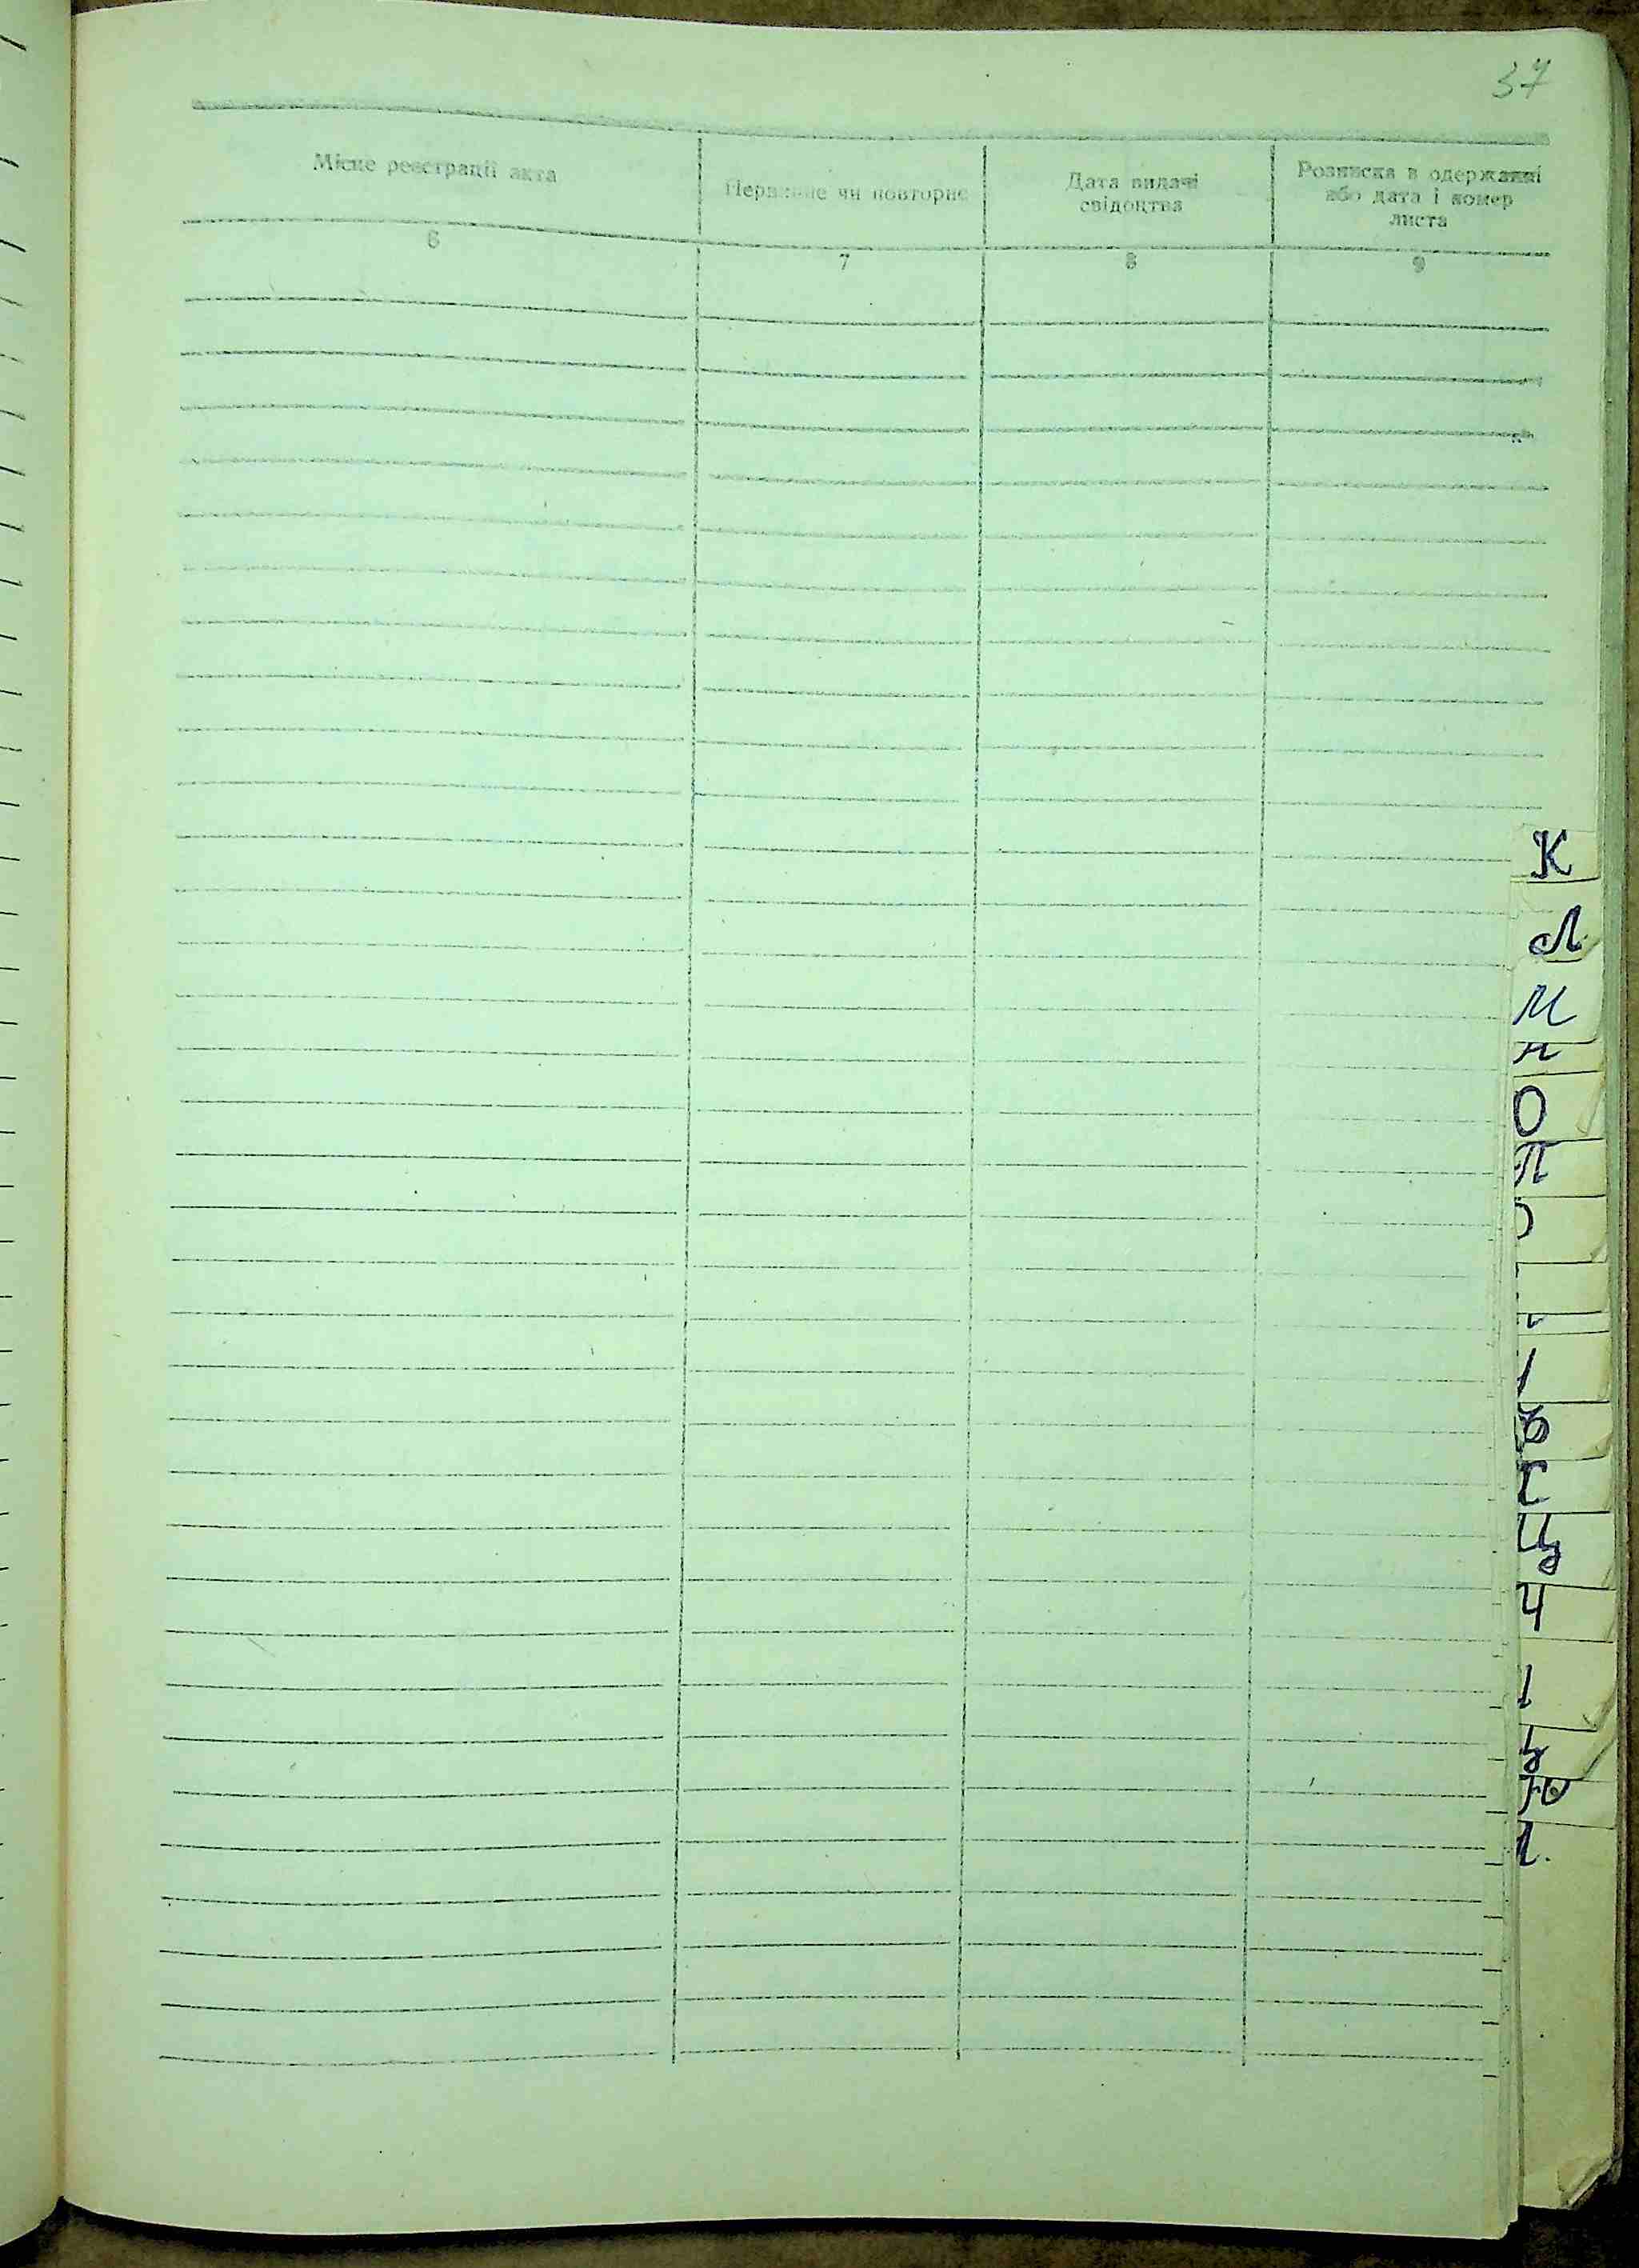 37
Місце реєстрації акта
Первинне чи повторне
Дата видачі
свідоцтва
Розписка в одержанні
або дата і номер
листа
6
7
8
9
К
Л
М
Н
О
П
Ц
Ч
Ю